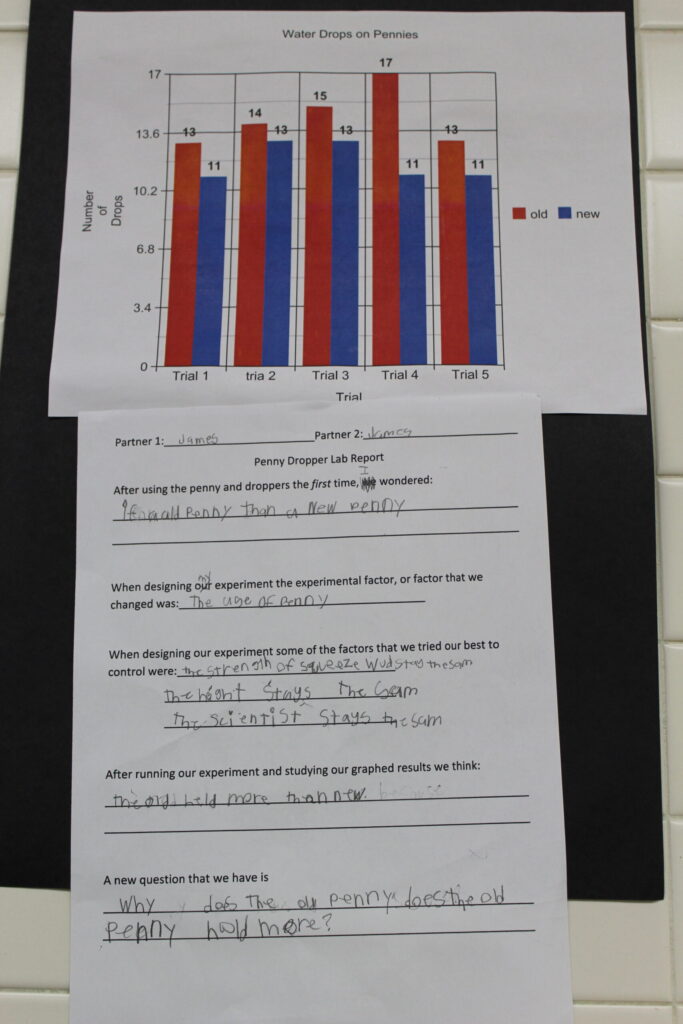 Water Drops on Pennies
17
13.6
10.2
6.8
3.4
0
Number
of
Drops
13
11
14
13
15
13
17
11
13
11
Trial 1
tria 2
Trial 3
Trial 4
Trial 5
Trial
old
new
Partner 1: James Partner 2: James
Penny Dropper Lab Report
After using the penny and droppers the first time, I wondered:
If old Penny than a New penny
When designing my experiment the experimental factor, or factor that we
changed was: The age of penny
When designing our experiment some of the factors that we tried our best to
control were: the strength of squeeze wud stay the sam
the hight stays the sam
The scientist stays the sam
After running our experiment and studying our graphed results we think:
the old held more than new.
A new question that we have is
Why does The old penny does the old
Penny hold more?